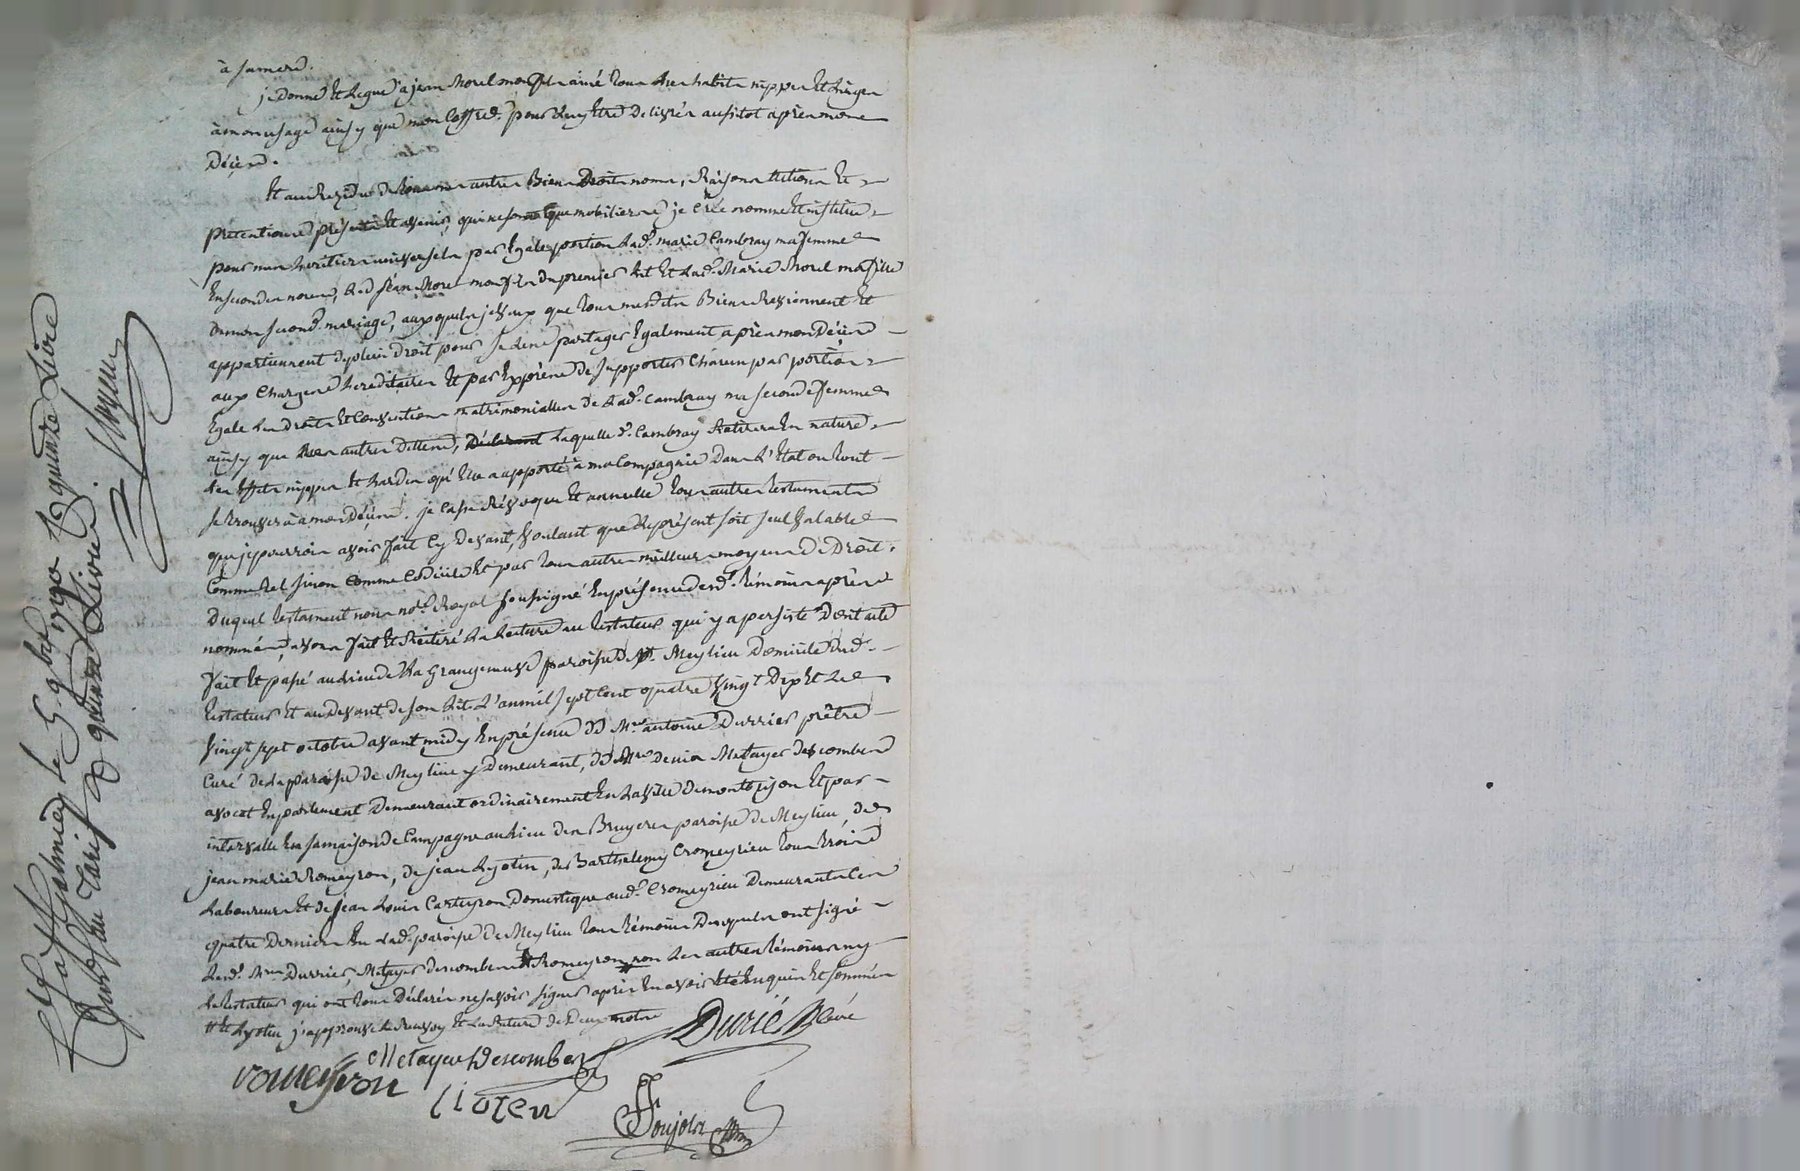 à sa mere.
je donne et legue à jean Morel mon fils ainé tous mes habits nippes et linges
à mon usage ainsy que mon coffre. pour luy etre delivrés aussitot après mon
décès.
Et au Residu de tous mes autres Biens Droits noms, Raisons actions et
pretentions présents et avenir, qui ne sont que mobiliers je crée nomme et institue
pour mes heritiers universels par égale portion lad. marie Cambray ma femme
en secondes noces, led. jean Morel mon fils du premier lit et lad. Marie Morel ma fille
de mon second mariage, auxquels je veux que tous mesdits Biens Reviennent et
appartiennent de plein droit pour se les partager également après mon décès
aux charges hereditaires et par exprès de supporter chacun par portion
égale les droits et conventions matrimoniales de lad. Cambray ma seconde femme
ainsy que mes autres dettes, Déclarant laquelle d. Cambray Retirera en nature
les effets nippes et hardes qu'elle a apporté à ma Compagnie dans l'etat où tout
se trouvera à mon décès. je casse Révoque et annulle tous autres testaments
que je pourrois avoir fait cy devant, voulant que le présent soit seul valable
comme tel sinon comme codicile et par tous autres meilleurs moyens de Droit.
Duquel testament nous no.re Royal soussigné en présence desd. témoins après
nommés, avons fait et Réiteré la lecture au testateur qui y a persisté Dont acte
fait et passé au lieu de la Grangeneuve paroisse de St. Meylieu Domicile dud.
testateur et au devant de son lit l'an mil sept cent quatre vingt dix et le
vingt sept octobre avant midy en présence de Mre antoine Durrier prêtre
Curé de la paroisse de Meylieu y Demeurant, de Mre denis Metayer descombes
avocat en parlement Demeurant ordinairement en la ville de montbrison et par
intervalle en sa maison de Campagne au lieu des Bruyeres paroisse de Meylieu, de
jean marie Romeyron, de jean Lyotin, de Barthelemy Cromeyrieu tous trois
Laboureurs et de jean Louis Carteyron Domestique aud. Cromeyrieu Demeurants ces
quatre Derniers en lad. paroisse de Meylieu tous témoins Desquels ont signé
lesd. Mres Durrier, Metayer descombes # Romeyron non les autres témoins ny
le testateur qui ont tous Déclaré ne savoir signer après en avoir eté Enquis et sommés
# et Lyotin j'approuve le Renvoy et la Rature de Deux mots
Durié Curé
Metayer Descombes
romeyron
lioten
Controlé a St Galmier le 5 9bre 1790 Rx quinze Livre
Sur le Tarif D quinze Livre